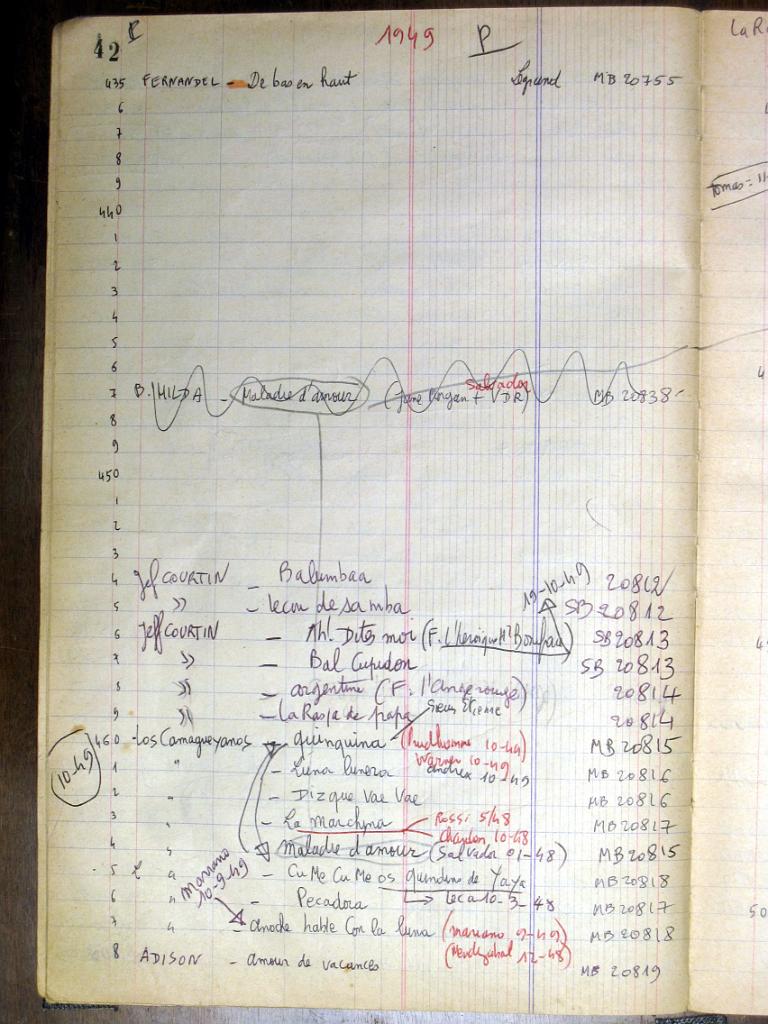 42 P 1949 P
435 FERNANDEL - De bas en haut Legrand MB 20755
6
7
8
9
440
1
2
3
4
5
6
7 B. HILDA - Maladie d'amour (Jane Morgan + VDR) Salvador MB 20838
8
9
450
1
2
3
4 Jef COURTIN - Balumbaa 20812
19-10-49
5 " - leçon de samba SB 20812
6 Jeff COURTIN - Ah! Dites moi (F. L'héroïque Mr Boniface) SB 20813
7 " - Bal Cupidon SB 20813
8 " - argentine (F. l'Ange rouge) 20814
9 " - La Raspa de papa 20814
460 - Los Camagueyanos - quinquina (Prudhomme 10-49) MB 20815
Warner 10-49
10-49
1 " - Luna lunera andrex 10-49 MB 20816
2 " - Diz que Vae Vae MB 20816
3 " - La marchina Rossi 5/48 MB 20817
10-48
4 " - Maladie d'amour (Salvador 01-48) MB 20815
5 " - Cu Me Cu Me os quindins de Yaya MB 20818
Mariano
10-9-49
6 " - Pecadora Leca 10-3-48 MB 20817
7 " - anoche hable Con la luna (mariano 9-49) MB 20818
12-48)
8 ADISON - amour de vacances MB 20819
La R
50